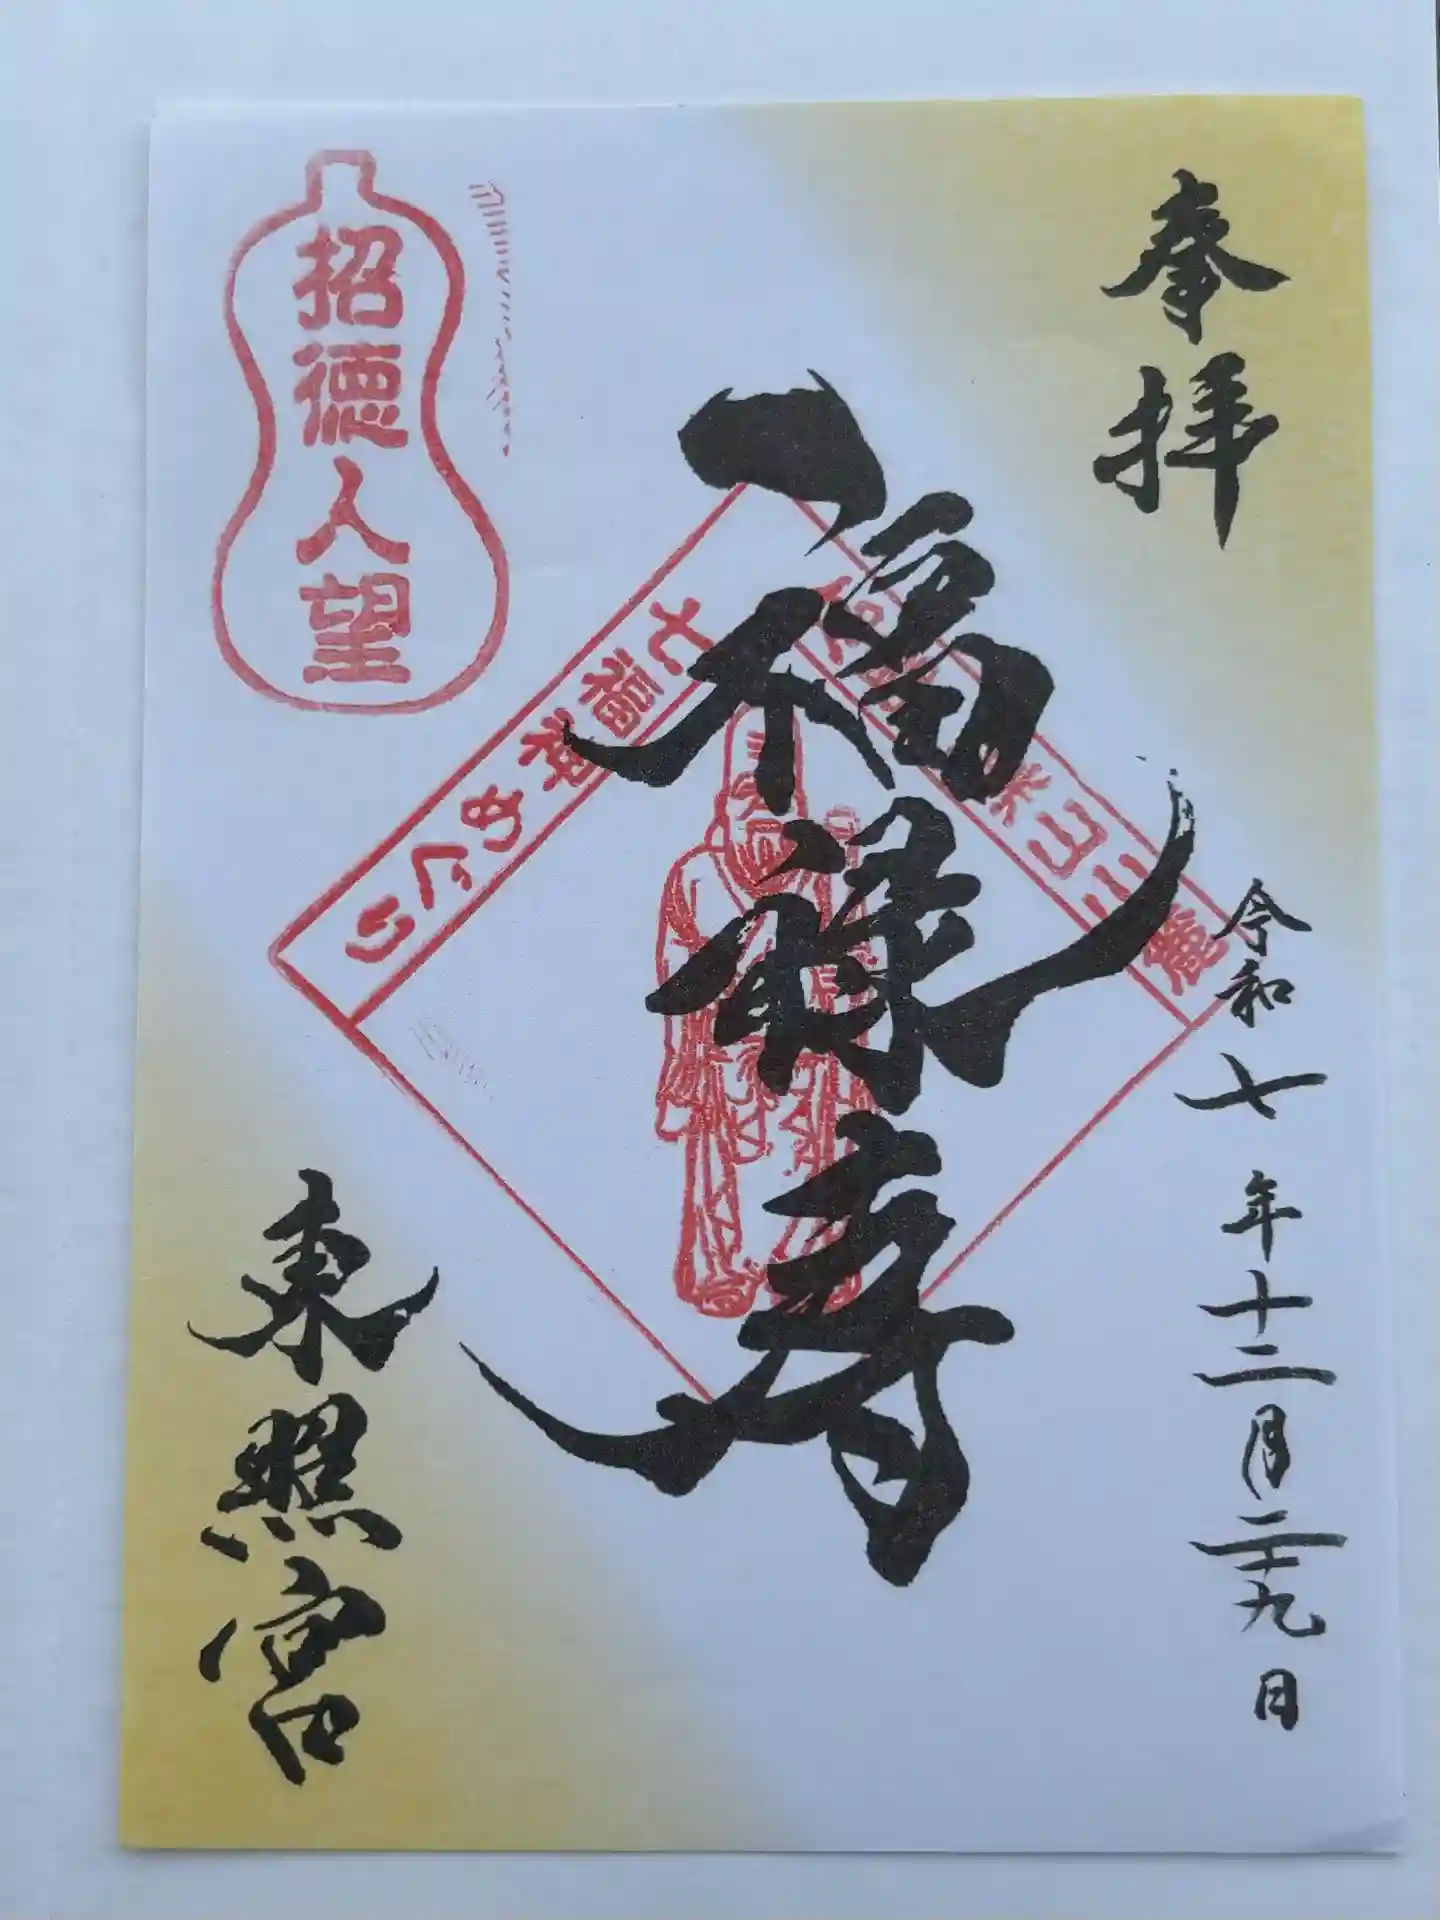 奉拝
令和七年十二月二十九日
福禄寿
七福神めぐり
山麓
招徳人望
東照宮